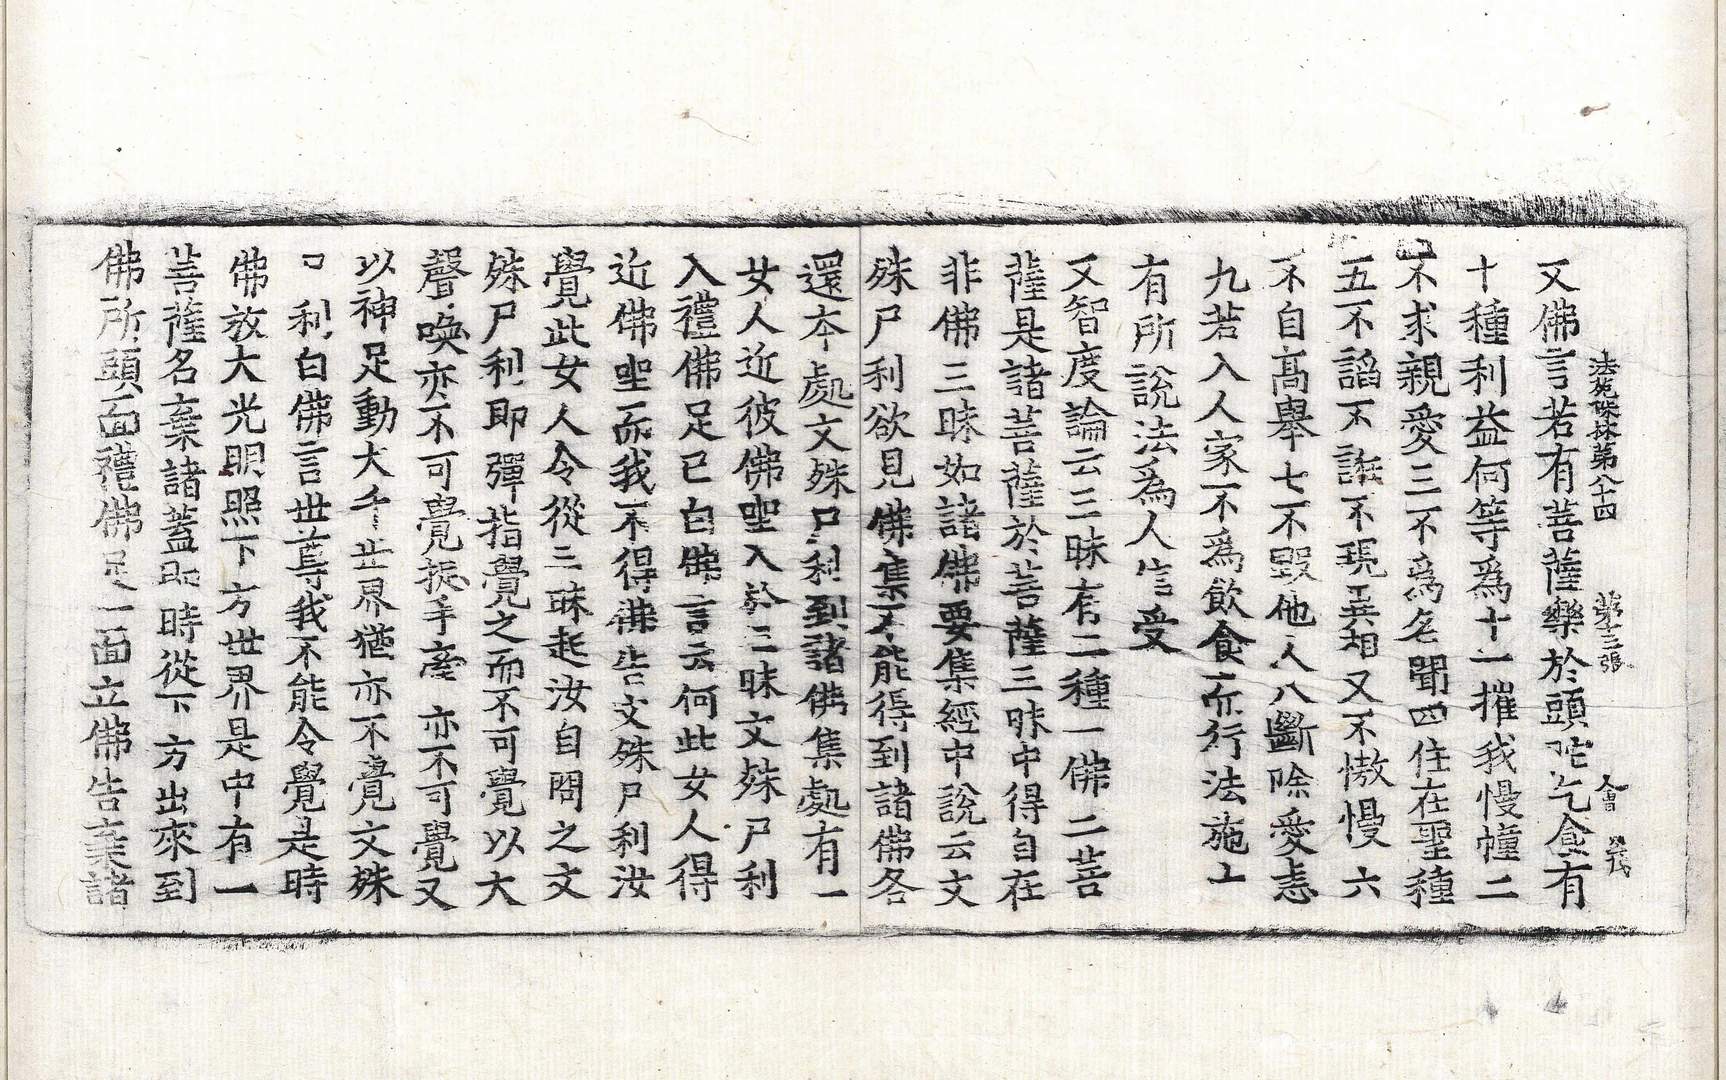 法苑珠林第八十四 第三張 會 茂
又佛言若有菩薩樂於頭陀乞食有
十種利益何等為十一摧我慢幢二
不求親愛三不為名聞四住在聖種
五不諂不誑不現異相又不憿慢六
不自高舉七不毀他人八斷除愛恚
九若入人家不為飲食而行法施十
有所說法為人信受
又智度論云三昧有二種一佛二菩
薩是諸菩薩於菩薩三昧中得自在
非佛三昧如諸佛要集經中說云文
殊尸利欲見佛集不能得到諸佛各
還本處文殊尸利到諸佛集處有一
女人近彼佛坐入於三昧文殊尸利
入禮佛足已白佛言云何此女人得
近佛坐而我不得佛告文殊尸利汝
覺此女人令從三昧起汝自問之文
殊尸利即彈指覺之而不可覺以大
聲喚亦不可覺捉手牽亦不可覺又
以神足動大千世界猶亦不覺文殊
尸利白佛言世尊我不能令覺是時
佛放大光明照下方世界是中有一
菩薩名棄諸蓋即時從下方出來到
佛所頭面禮佛足一面立佛告棄諸